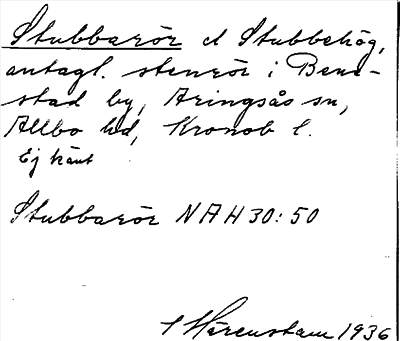 Stubbarör el Stubbehög,
antagl. stenrör i Bene-
stad by, Aringsås sn,
Allbo hd, Kronob l.
Ej känt
Stubbarör NAH 30:50
Härenstam 1936